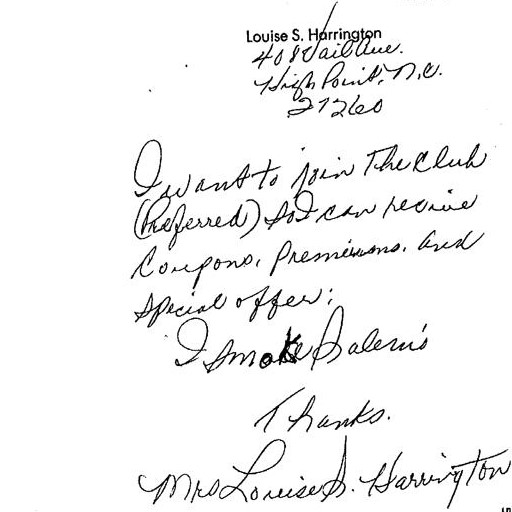 Louise S. Harrington
408 Vail Ave.
High Point, N.C.
27260
I want to join The Club
(Preferred) So I can receive
Coupons, Premiums, and
Special offer;
I smoke Salem's
Thanks.
Mrs Louise S. Harrington